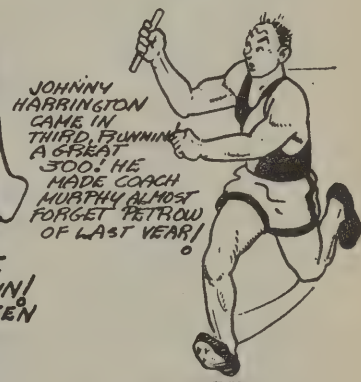 JOHNNY
HARRINGTON
CAME IN
THIRD, RUNNING
A GREAT
300! HE
MADE COACH
MURPHY ALMOST
FORGET PETROW
OF LAST YEAR!